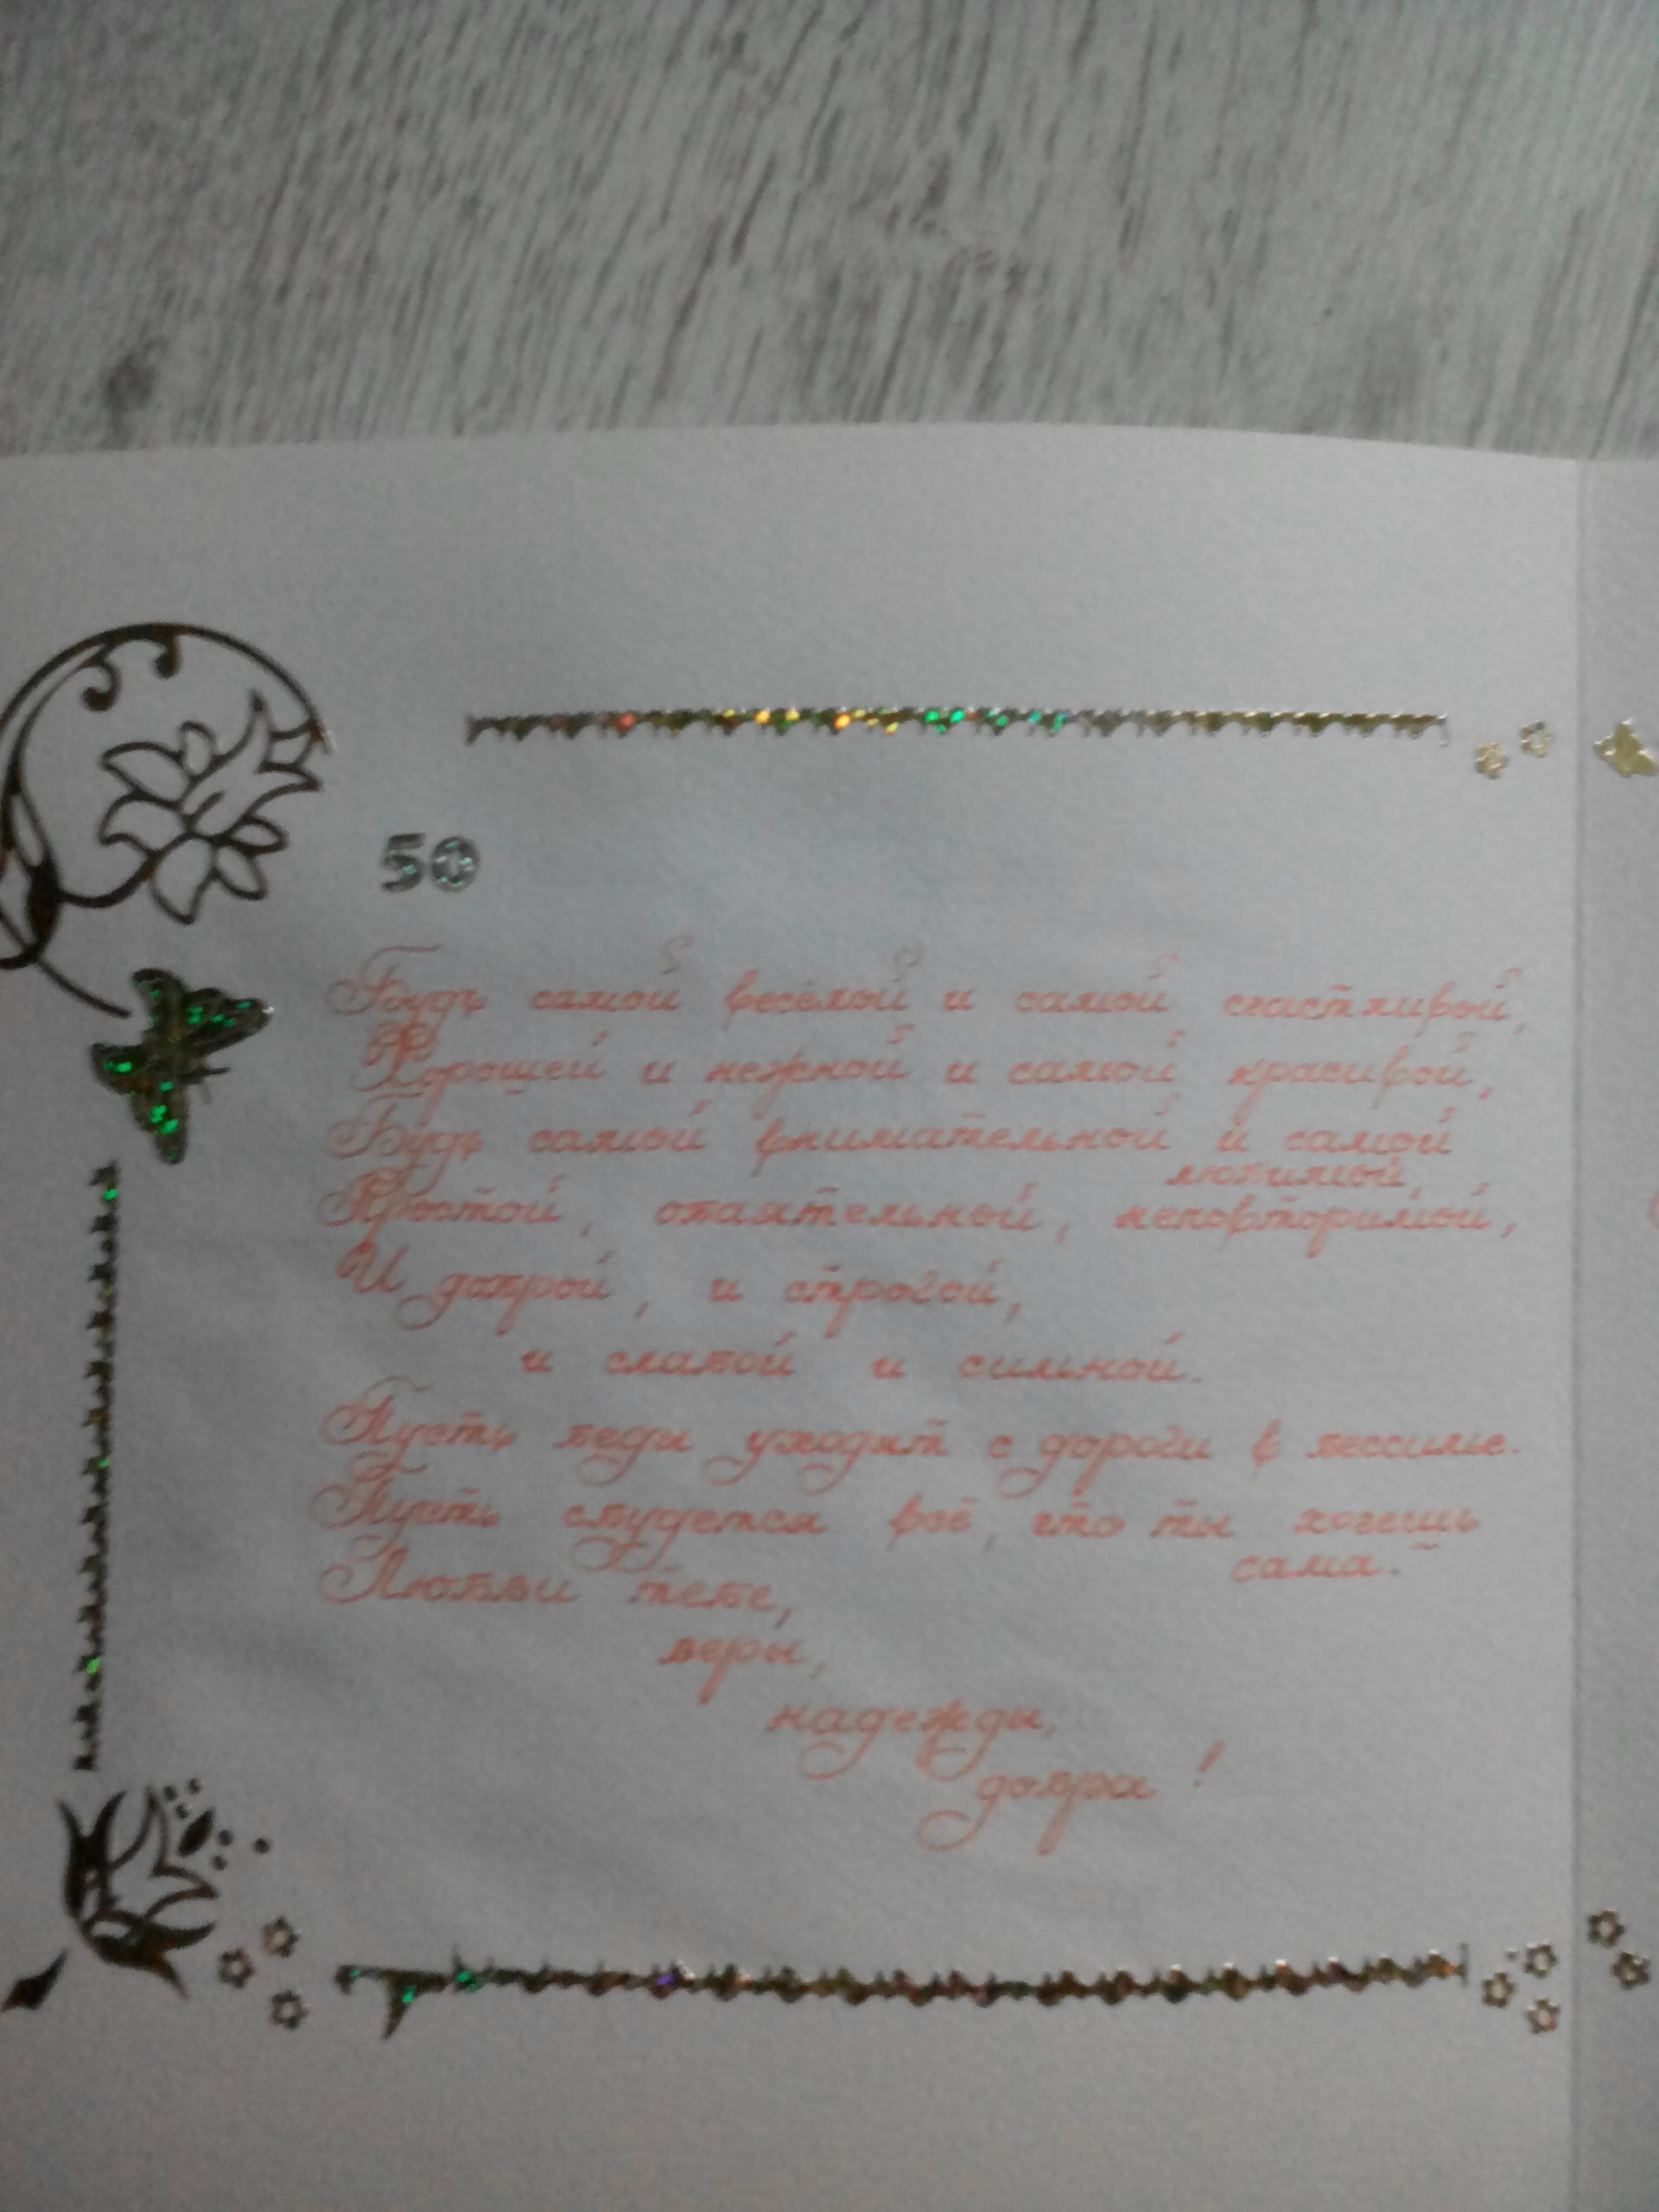 50
Будь самой весёлой и самой счастливой,
Хорошей и нежной и самой красивой,
Будь самой внимательной и самой
любимой,
Простой, обаятельной, неповторимой,
И доброй, и строгой,
и слабой и сильной.
Пусть беды уходят с дороги в бессилье.
Пусть сбудется всё, что ты хочешь
сама.
Любви тебе,
веры,
надежды,
добра!